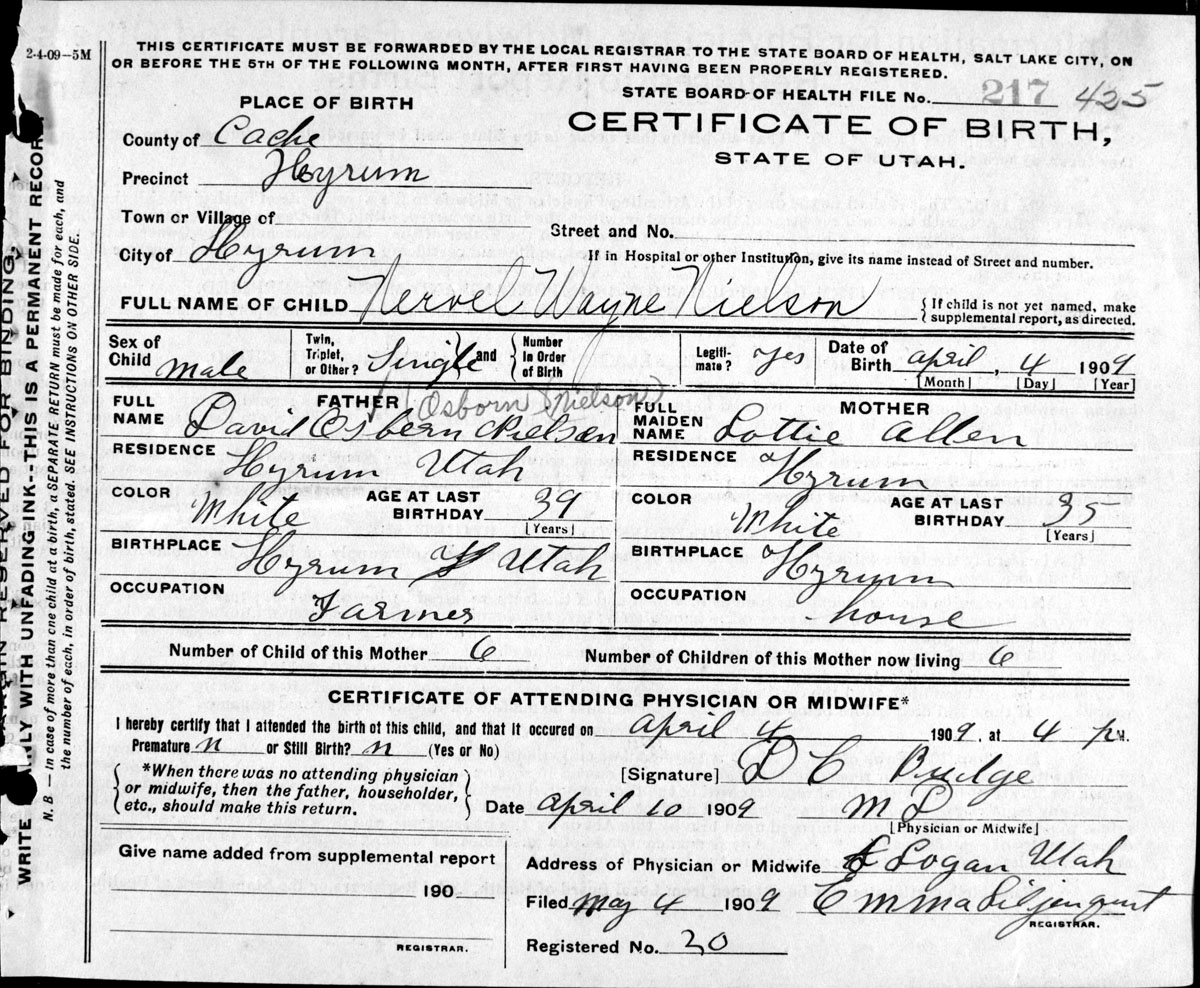 2-4-09—5M
THIS CERTIFICATE MUST BE FORWARDED BY THE LOCAL REGISTRAR TO THE STATE BOARD OF HEALTH, SALT LAKE CITY, ON
OR BEFORE THE 5TH OF THE FOLLOWING MONTH, AFTER FIRST HAVING BEEN PROPERLY REGISTERED.
STATE BOARD OF HEALTH FILE No. 217 425
PLACE OF BIRTH
CERTIFICATE OF BIRTH,
STATE OF UTAH.
County of Cache
Precinct Hyrum
Town or Village of
Street and No.
City of Hyrum
If in Hospital or other Institution, give its name instead of Street and number.
FULL NAME OF CHILD Nervel Wayne Nielson
{ If child is not yet named, make
supplemental report, as directed.
Sex of Child Male
Twin, Triplet, or Other? Single and Number in Order of Birth
Legiti-mate? Yes
Date of Birth April, 4 1909
[Month] [Day] [Year]
FATHER (Osborn Nielson)
FULL NAME David Osbern Nielsen
RESIDENCE Hyrum Utah
COLOR White AGE AT LAST BIRTHDAY 39
[Years]
BIRTHPLACE Hyrum Utah
OCCUPATION Farmer
MOTHER
FULL MAIDEN NAME Lottie Allen
RESIDENCE Hyrum
COLOR White AGE AT LAST BIRTHDAY 35
[Years]
BIRTHPLACE Hyrum
OCCUPATION house
Number of Child of this Mother 6 Number of Children of this Mother now living 6
CERTIFICATE OF ATTENDING PHYSICIAN OR MIDWIFE*
I hereby certify that I attended the birth of this child, and that it occured on April 4 1909, at 4 P M.
Premature n or Still Birth? n (Yes or No)
*When there was no attending physician
or midwife, then the father, householder,
etc., should make this return.
[Signature] D C Budge
Date April 10 1909 M D
[Physician or Midwife]
Give name added from supplemental report
190
REGISTRAR.
Address of Physician or Midwife Logan Utah
Filed May 4 1909 Emma Liljenquist
REGISTRAR.
Registered No. 20
MARGIN RESERVED FOR BINDING.
WRITE ONLY WITH UNFADING INK—THIS IS A PERMANENT RECORD
N. B. — In case of more than one child at a birth, a SEPARATE RETURN must be made for each, and
the number of each, in order of birth, stated. SEE INSTRUCTIONS ON OTHER SIDE.